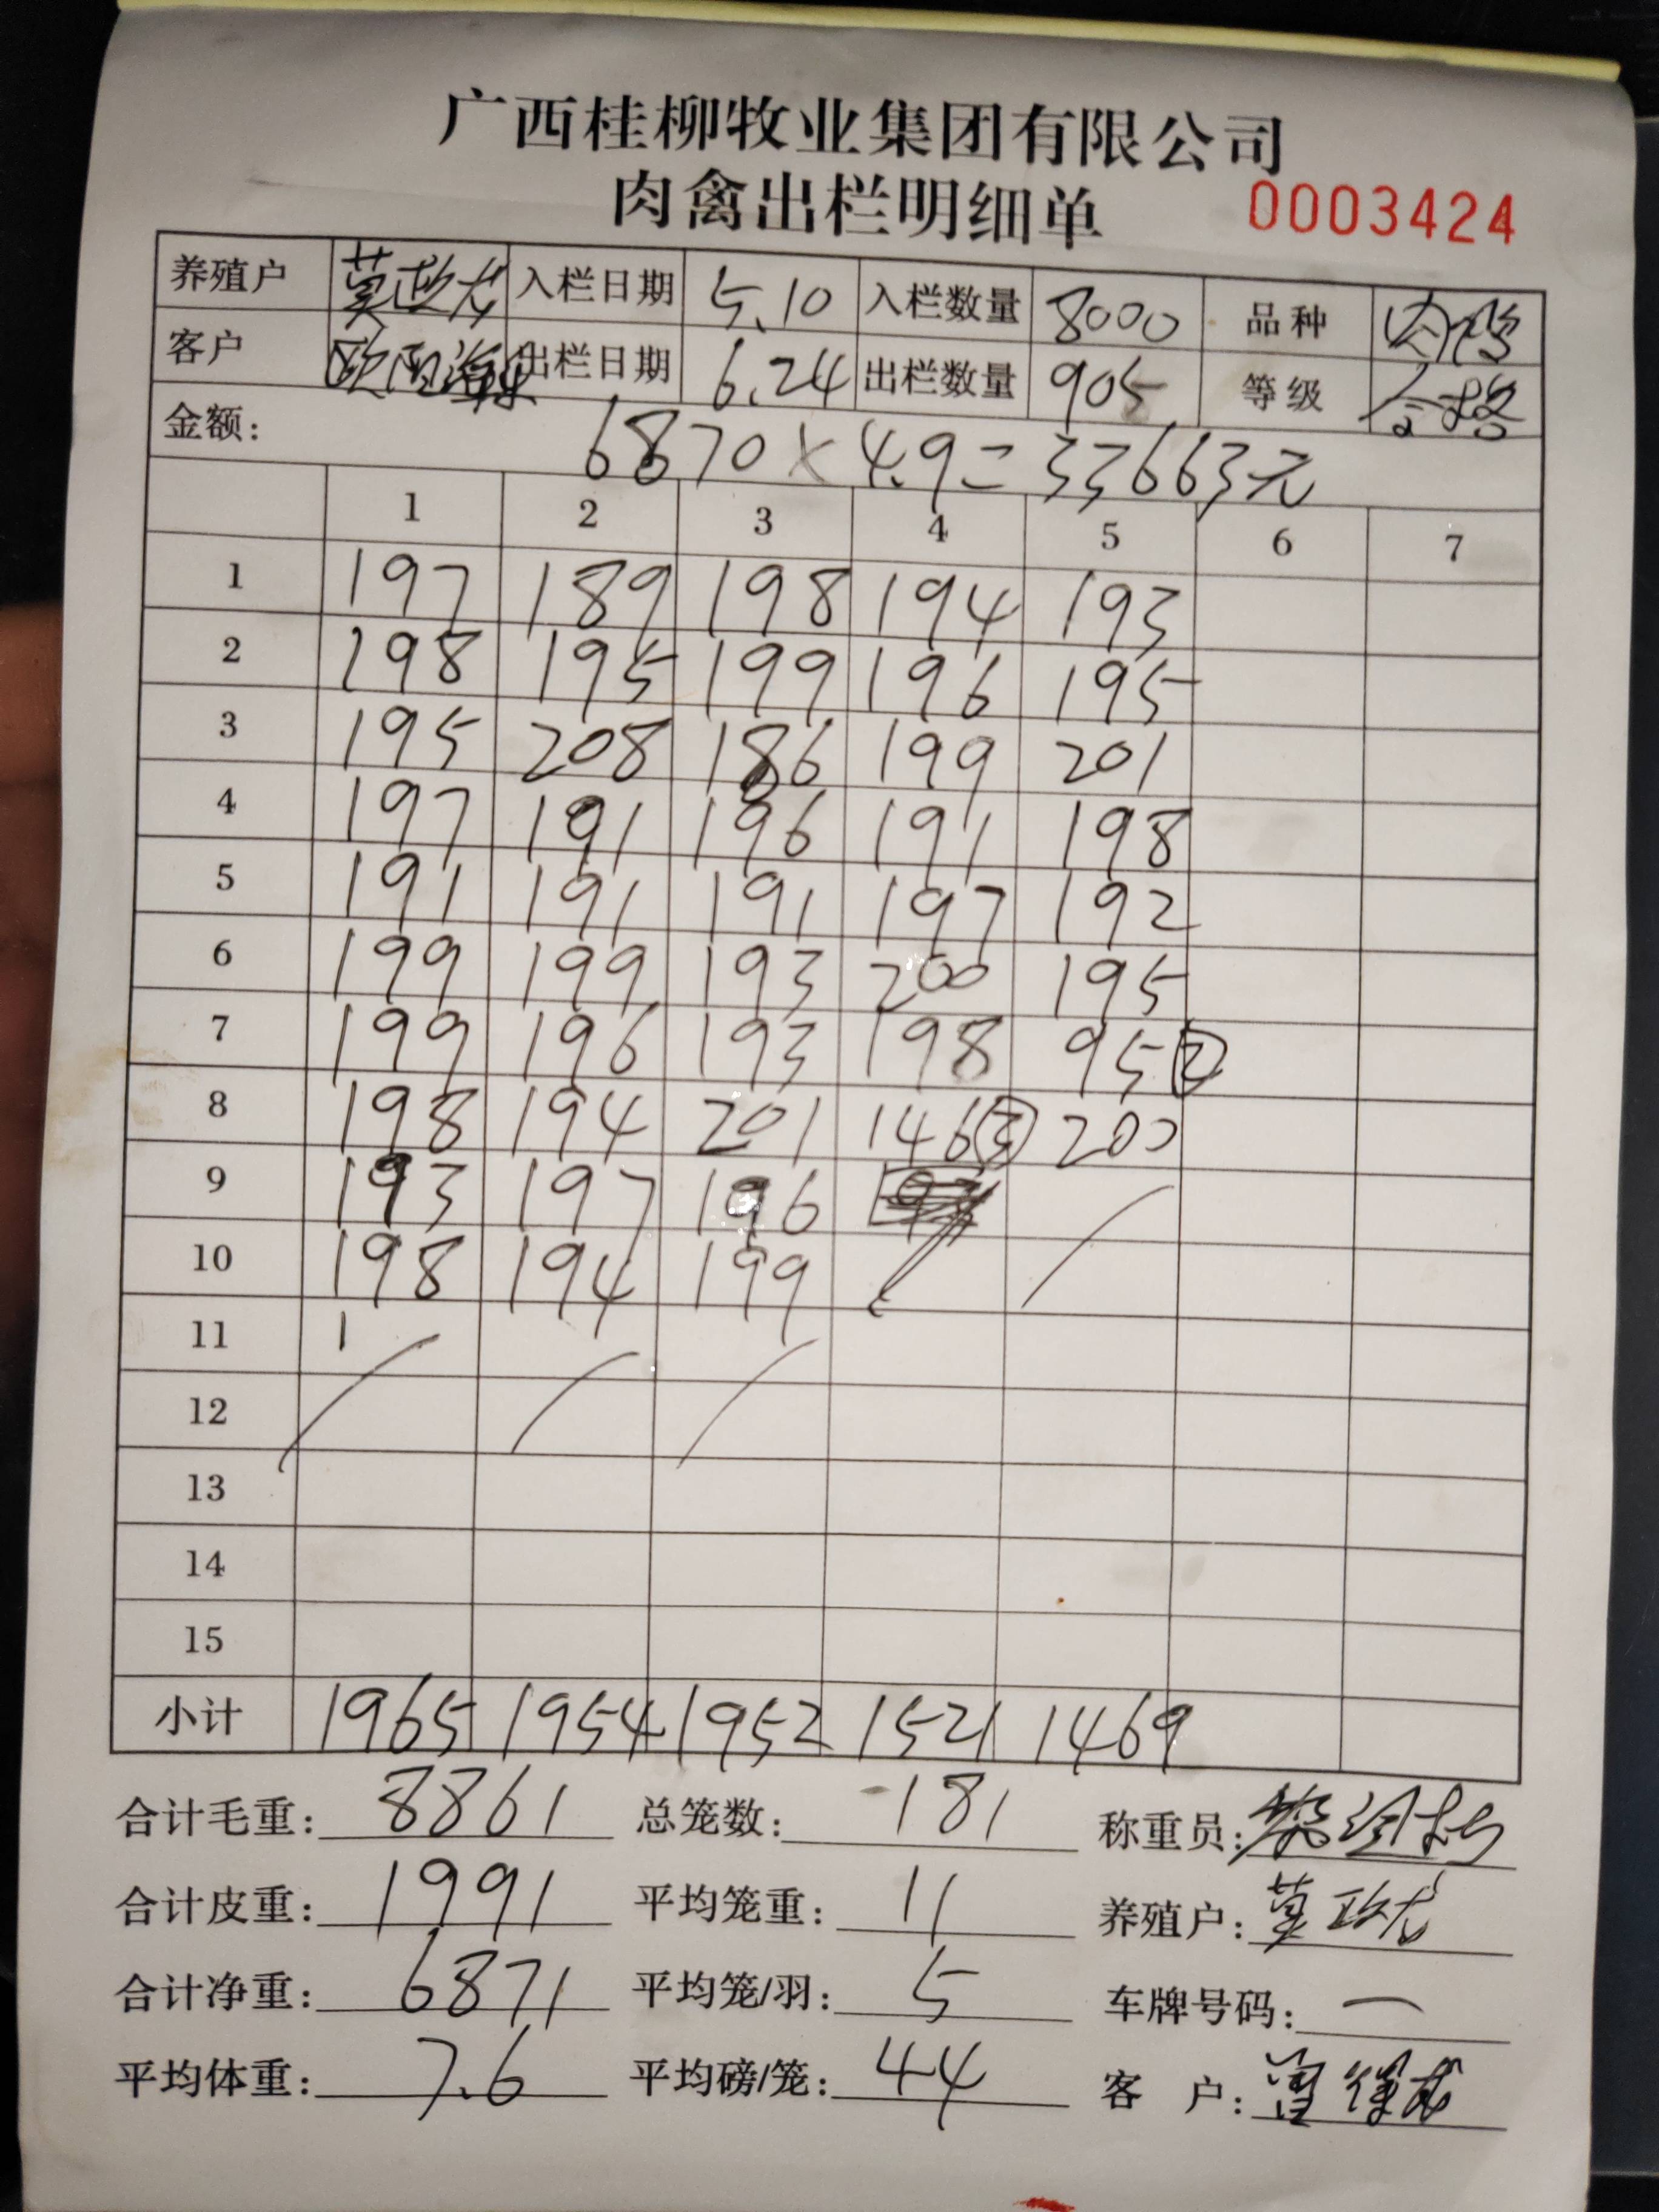 广西桂柳牧业集团有限公司
肉禽出栏明细单 0003424
养殖户 莫政龙 入栏日期 5.10 入栏数量 8000 品种 肉鸡
客户 出栏日期 6.24 出栏数量 905 等级 合格
金额: 6870×4.9=33663元
1 2 3 4 5 6 7
1 197 189 198 194 193
2 198 195 199 196 195
3 195 208 186 199 201
4 197 191 196 191 198
5 191 191 191 197 192
6 199 199 193 200 195
7 199 196 193 198 95②
8 198 194 201 146③ 200
9 193 197 196
10 198 194 199
11 1
12
13
14
15
小计 1965 1954 1952 1521 1469
合计毛重: 8861 总笼数: 181 称重员:
合计皮重: 1991 平均笼重: 11 养殖户: 莫政龙
合计净重: 6871 平均笼/羽: 5 车牌号码: 一
平均体重: 7.6 平均磅/笼: 44 客 户: